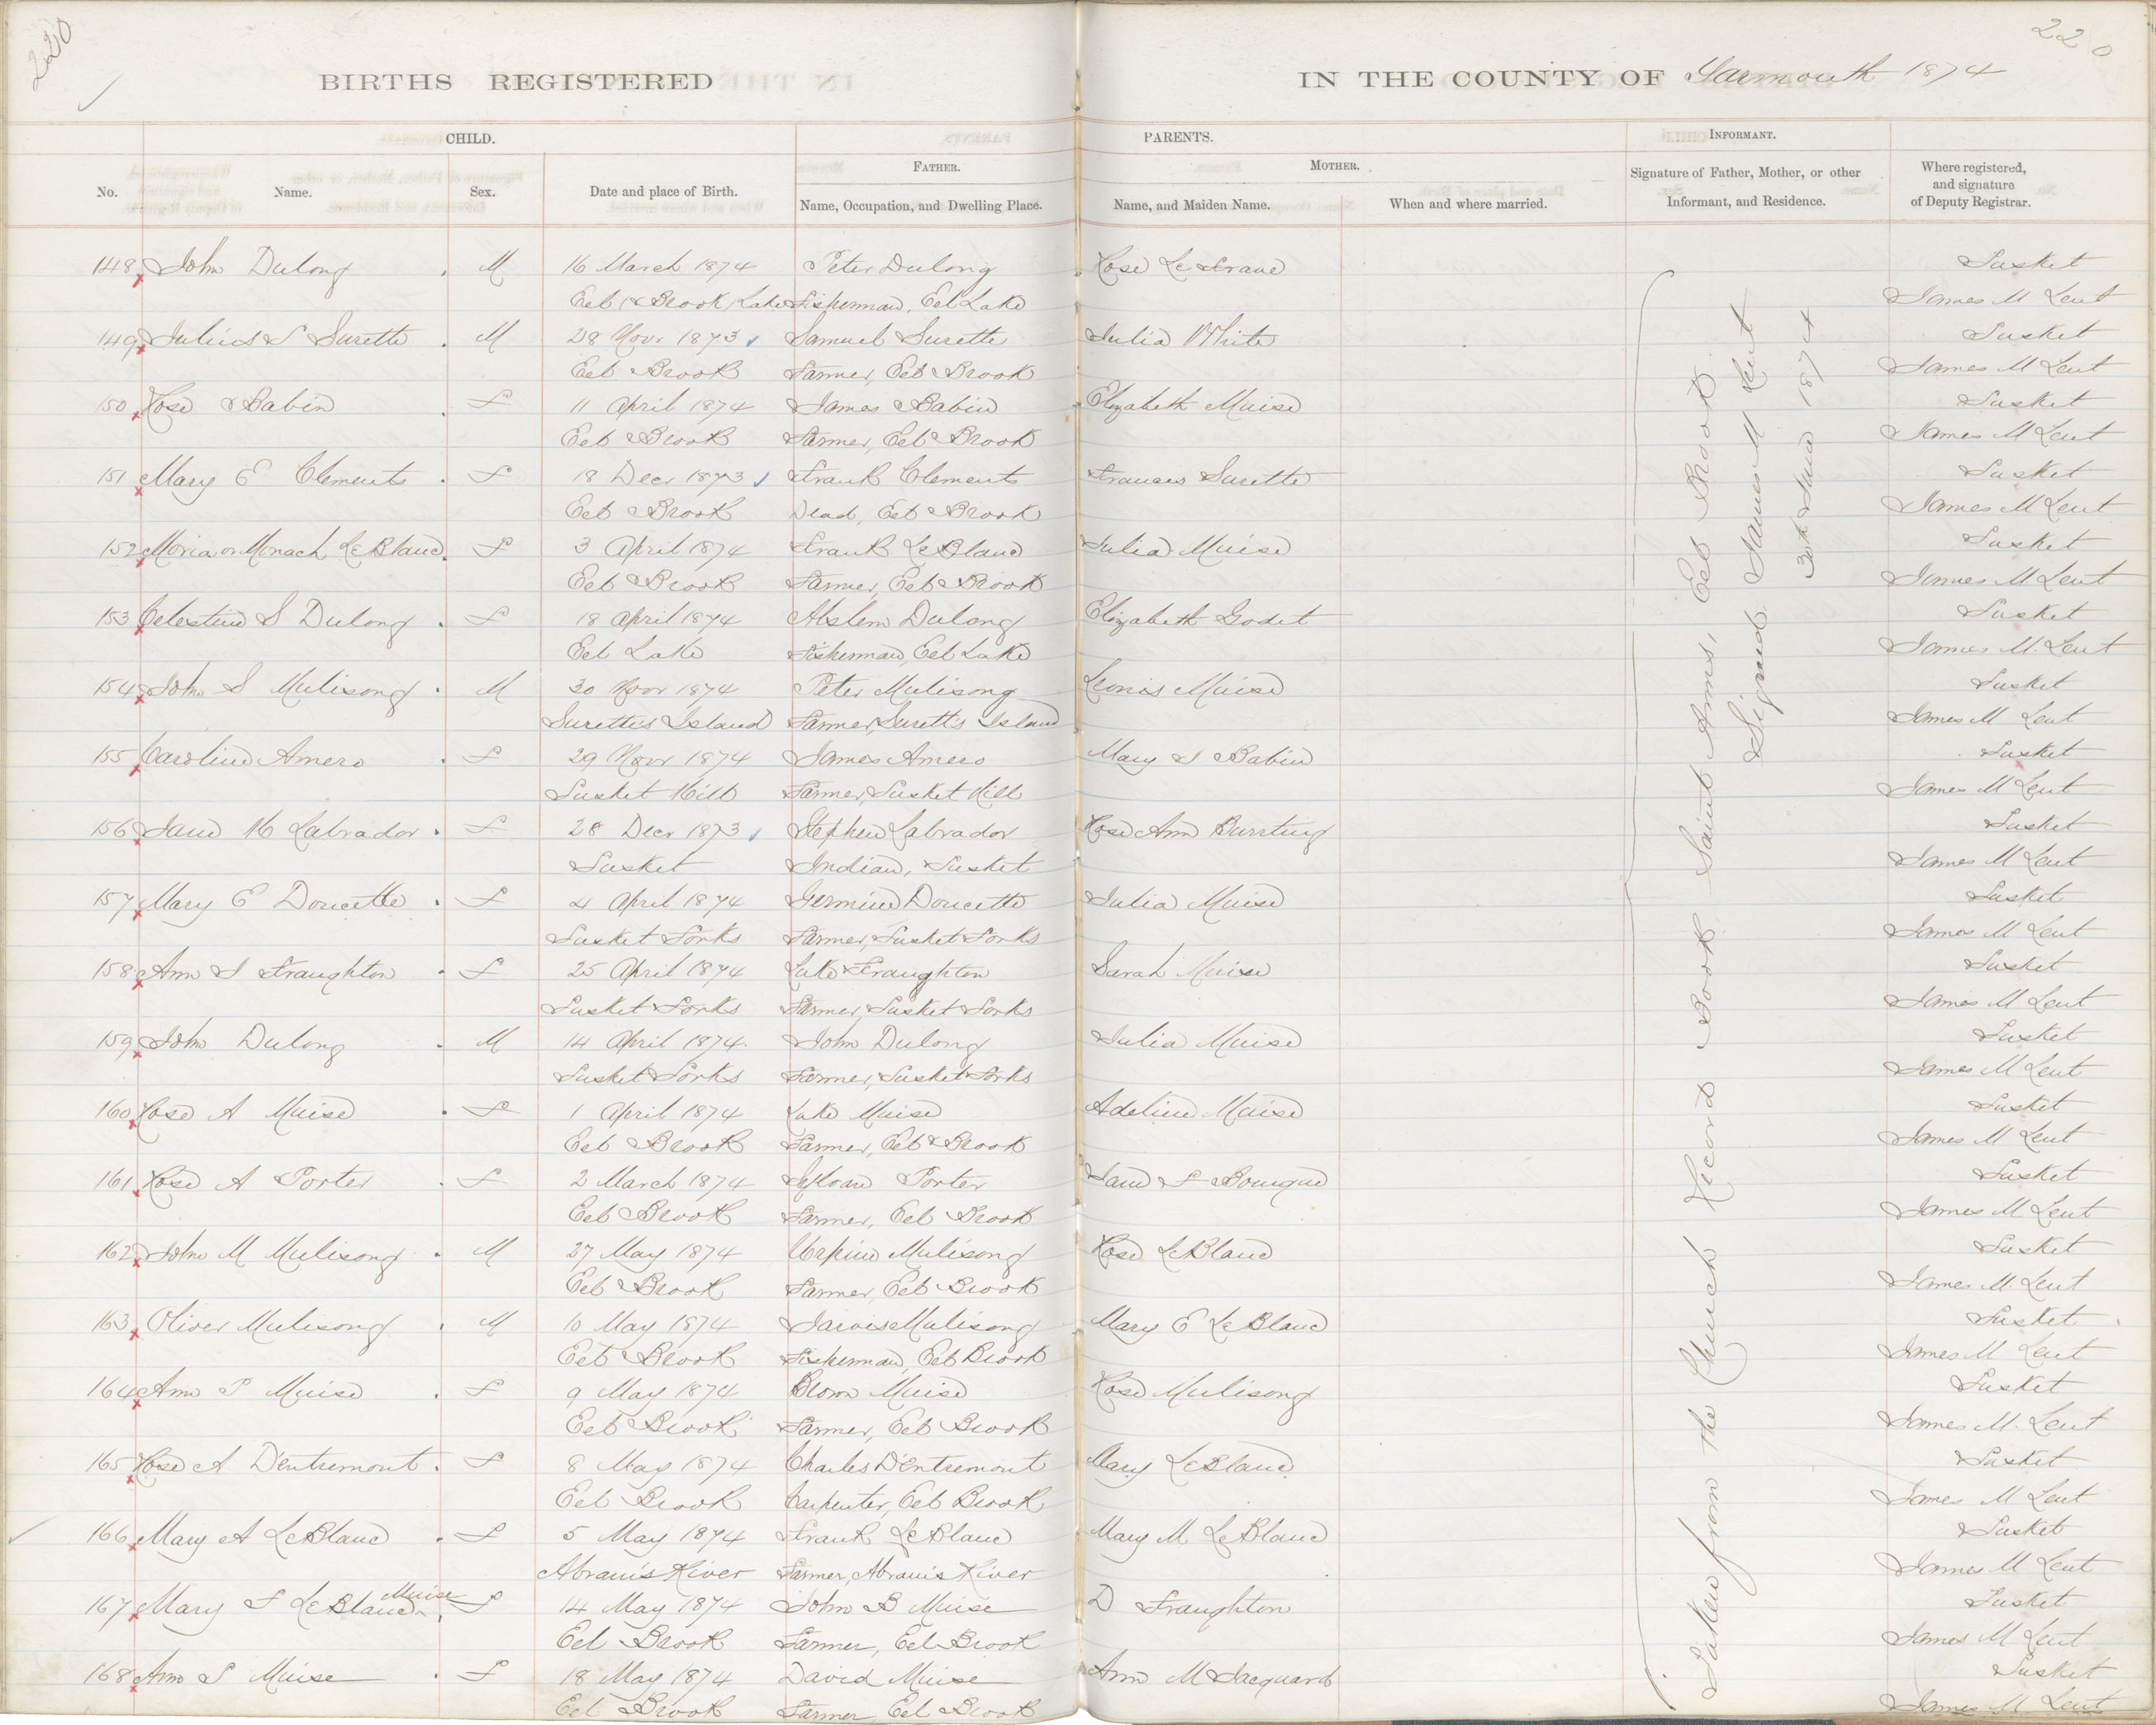 220
220
BIRTHS REGISTERED
IN THE COUNTY OF Yarmouth 1874
CHILD.
PARENTS.
INFORMANT.
FATHER.
MOTHER.
No.
Name.
Sex.
Date and place of Birth.
Name, Occupation, and Dwelling Place.
Name, and Maiden Name.
When and where married.
Signature of Father, Mother, or other
Informant, and Residence.
Where registered,
and signature
of Deputy Registrar.
148 John Dulong M 16 March 1874 Peter Dulong Rose Le Frave Tusket
Eel Brook Lake Fisherman, Eel Lake James M Lent
149 Julius S Surette M 28 Novr 1873 Samuel Surette Julia White Tusket
Eel Brook Farmer, Eel Brook James M Lent
150 Rose Babin F 11 April 1874 James Babin Elizabeth Muise Tusket
Eel Brook Farmer, Eel Brook James M Lent
151 Mary E Clements F 18 Decr 1873 Frank Clements Frances Surette Tusket
Eel Brook Dead, Eel Brook James M Lent
152 Moria or Monach LeBlanc F 3 April 1874 Frank LeBlanc Julia Muise Tusket
Eel Brook Farmer, Eel Brook James M Lent
153 Celestine S Dulong F 18 April 1874 Abslem Dulong Elizabeth Godet Tusket
Eel Lake Fisherman, Eel Lake James M. Lent
154 John S Mulisong M 30 Novr 1874 Peter Mulisong Leonis Muise Tusket
Surette's Island Farmer, Surett's Island James M Lent
155 Caroline Amero F 29 Novr 1874 James Amero Mary S Babin Tusket
Tusket Hill Farmer, Tusket Hill James M Lent
156 Jane H Labrador F 28 Decr 1873 Stephen Labrador Rose Ann Tusket
Tusket Indian, Tusket James M Lent
157 Mary E Doucette F 4 April 1874 Germine Doucette Julia Muise Tusket
Tusket Forks Farmer, Tusket Forks James M Lent
158 Ann S Fraughton F 25 April 1874 Luke Fraughton Sarah Muise Tusket
Tusket Forks Farmer, Tusket Forks James M Lent
159 John Dulong M 14 April 1874 John Dulong Julia Muise Tusket
Tusket Forks Farmer, Tusket Forks James M Lent
160 Rose A Muise F 1 April 1874 Luke Muise Adeline Muise Tusket
Eel Brook Farmer, Eel Brook James M Lent
161 Rose A Porter F 2 March 1874 Porter Jane F Bourque Tusket
Eel Brook Farmer, Eel Brook James M Lent
162 John M Mulisong M 27 May 1874 Mulisong Rose LeBlanc Tusket
Eel Brook Farmer, Eel Brook James M. Lent
163 Oliver Mulisong M 10 May 1874 Jarvis Mulisong Mary E LeBlanc Tusket
Eel Brook Fisherman, Eel Brook James M Lent
164 Ann P Muise F 9 May 1874 Muise Rose Mulisong Tusket
Eel Brook Farmer, Eel Brook James M. Lent
165 Rose A D'Entremont F 8 May 1874 Charles D'Entremont Mary LeBlanc Tusket
Eel Brook Carpenter, Eel Brook James M Lent
166 Mary A LeBlanc F 5 May 1874 Frank LeBlanc Mary M LeBlanc Tusket
Abram's River Farmer, Abram's River James M Lent
Muise
167 Mary F LeBlanc F 14 May 1874 John B Muise D Fraughton Tusket
Eel Brook Farmer, Eel Brook James M Lent
168 Ann S Muise F 18 May 1874 David Muise Ann M Jacquard Tusket
Eel Brook Farmer, Eel Brook James M Lent
Taken from the Church Record Book Saint Anns, Eel Brook
Signed James M Lent
30th June 1874